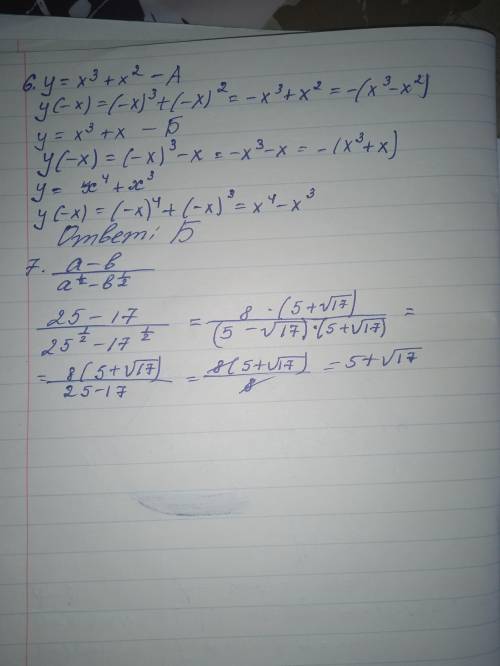 6. y = x³ + x² – А
y(-x) = (-x)³ + (-x)² = -x³ + x² = -(x³ - x²)
y = x³ + x – Б
y(-x) = (-x)³ - x = -x³ - x = -(x³ + x)
y = x⁴ + x³
y(-x) = (-x)⁴ + (-x)³ = x⁴ - x³
Ответ: Б
7. (a - в)/(a^(1/2) - в^(1/2))
(25 - 17)/(25^(1/2) - 17^(1/2)) = (8 · (5 + √17))/((5 - √17) · (5 + √17)) =
= (8(5 + √17))/(25 - 17) = (8(5 + √17))/8 = 5 + √17